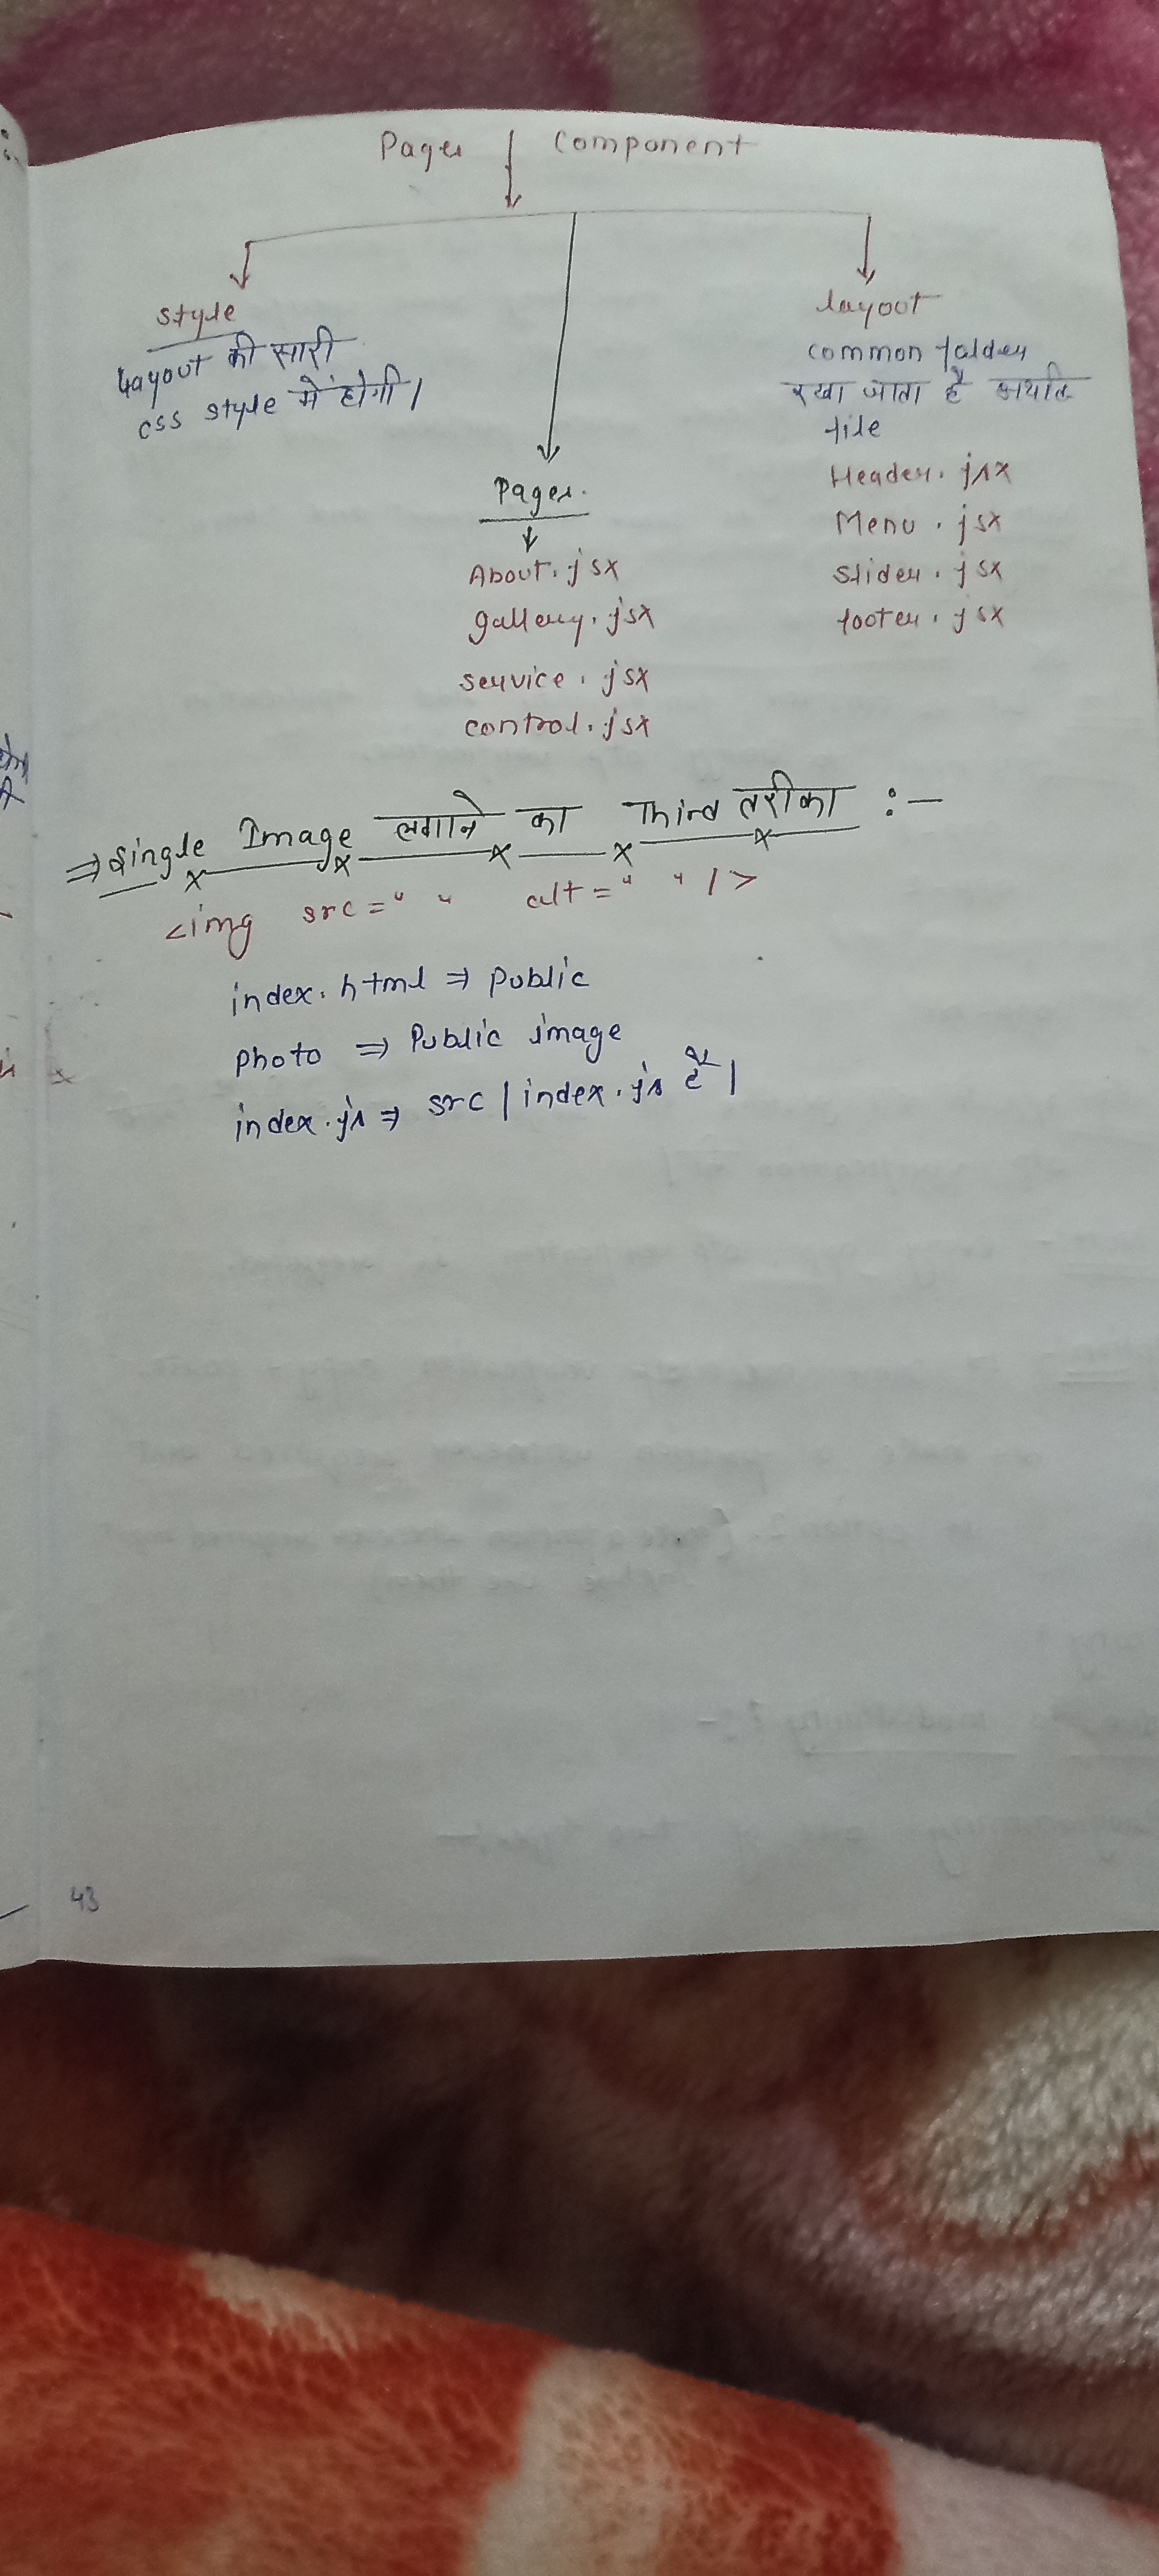 Pages | Component
style
Layout की सारी
css style में होगी।
Pages.
About.jsx
gallery.jsx
service.jsx
control.jsx
layout
common folder
रखा जाता है अर्थात
file
Header.jsx
Menu.jsx
slider.jsx
footer.jsx
⇒ Single Image लगाने का Third तरीका :-
<img src=" " alt=" " />
index.html ⇒ public
photo ⇒ Public image
index.js ⇒ src | index.js है।
43